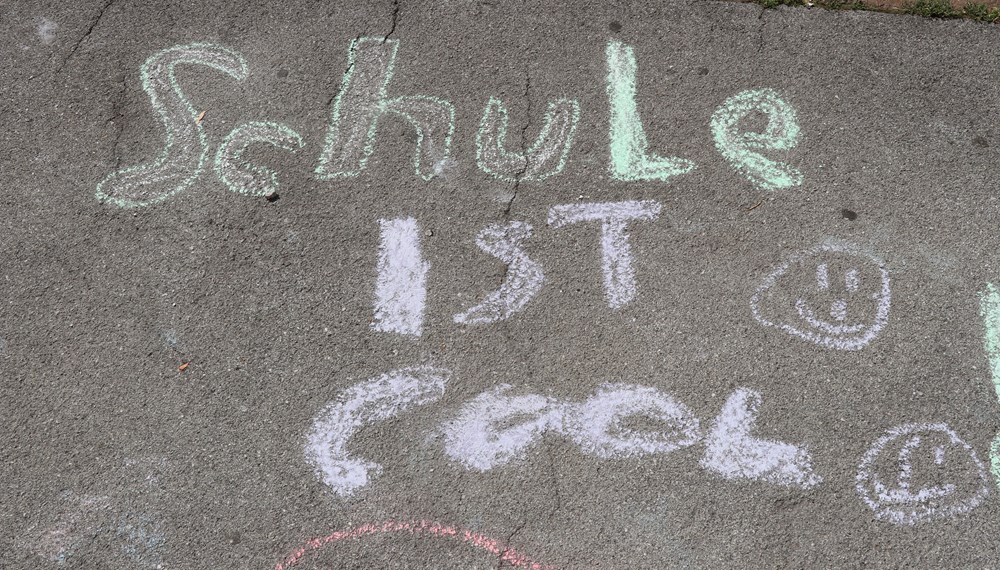 Schule
IST
COOL